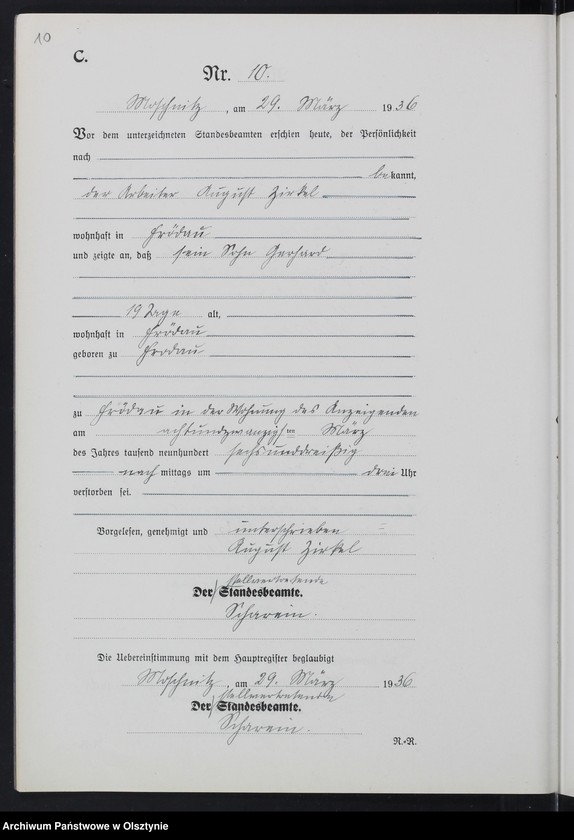 10
C.
Nr. 10.
Moschnitz, am 29. März 1936
Vor dem unterzeichneten Standesbeamten erschien heute, der Persönlichkeit
nach
bekannt,
der Arbeiter August Zirkel
wohnhaft in Frödau
und zeigte an, daß sein Sohn Gerhard
19 Tage alt,
wohnhaft in Frödau
geboren zu Frödau
zu Frödau in der Wohnung des Anzeigenden
am achtundzwanzigsten März
des Jahres tausend neunhundert sechsunddreißig
nachmittags um drei Uhr
verstorben sei.
Vorgelesen, genehmigt und unterschrieben
August Zirkel
stellvertretende
Der Standesbeamte.
Scharein.
Die Uebereinstimmung mit dem Hauptregister beglaubigt
Moschnitz, am 29. März 1936
stellvertretende
Der Standesbeamte.
Scharein.
R.-R.
Archiwum Państwowe w Olsztynie